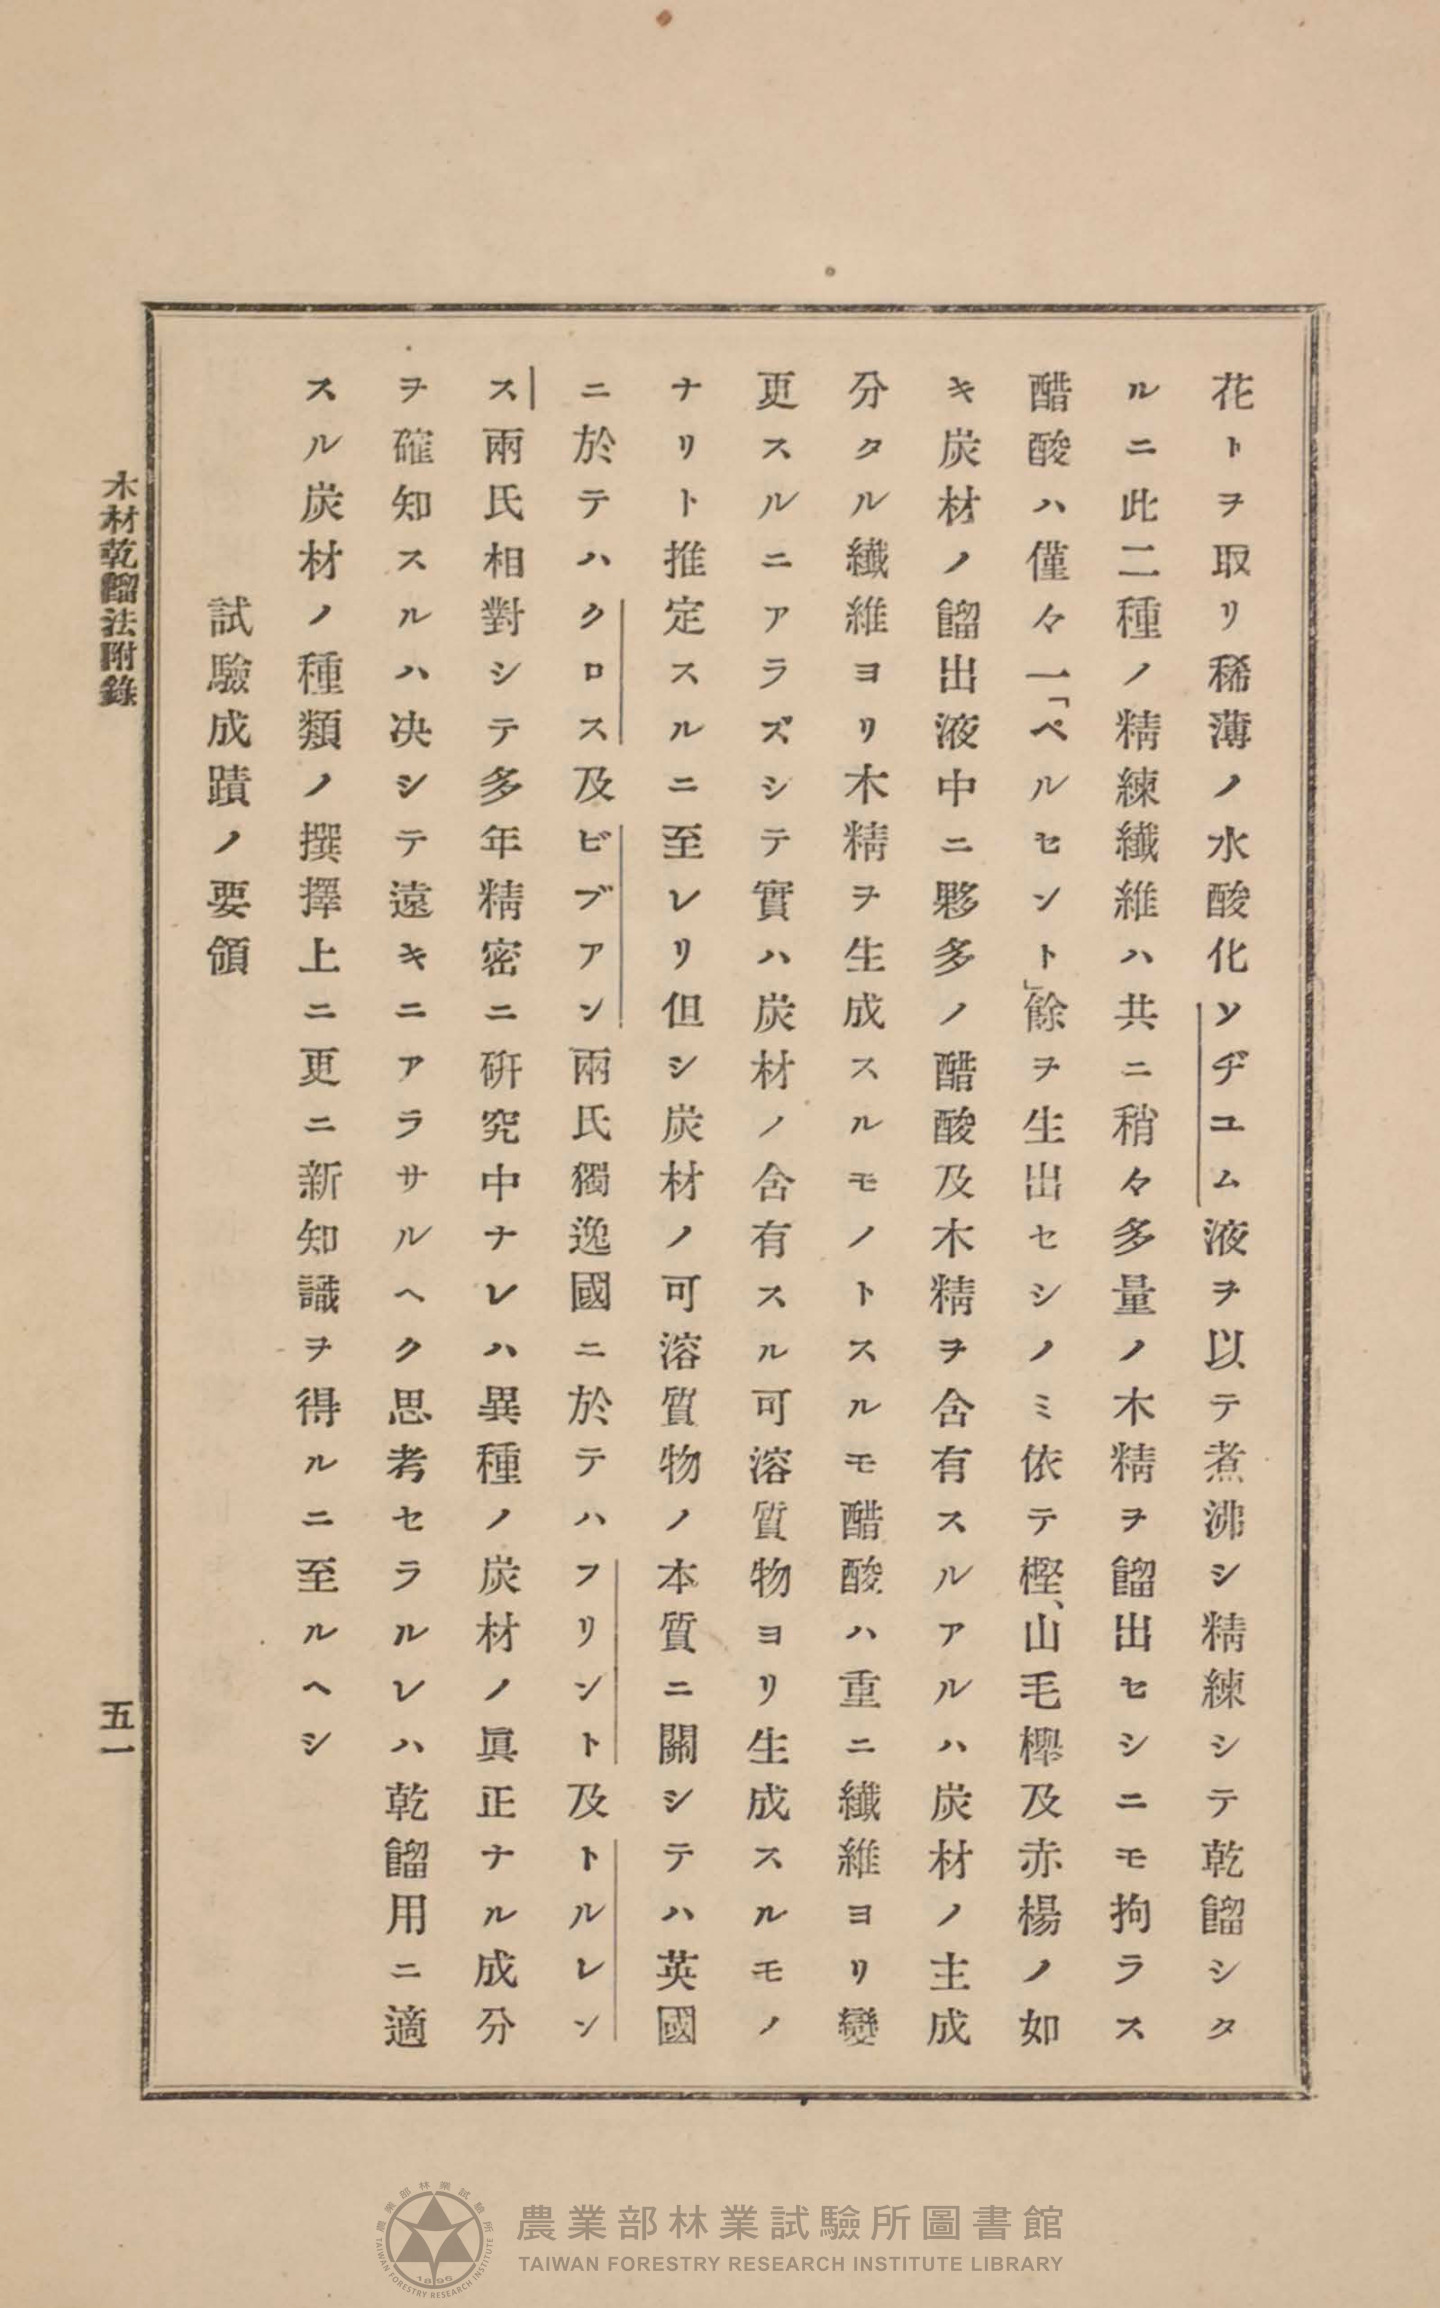 花トヲ取リ稀薄ノ水酸化ソヂユム液ヲ以テ煮沸シ精練シテ乾餾シタ
ルニ此二種ノ精練纖維ハ共ニ稍々多量ノ木精ヲ餾出セシニモ拘ラス
醋酸ハ僅々一「ペルセント」餘ヲ生出セシノミ依テ樫、山毛櫸及赤楊ノ如
キ炭材ノ餾出液中ニ夥多ノ醋酸及木精ヲ含有スルアルハ炭材ノ主成
分タル纖維ヨリ木精ヲ生成スルモノトスルモ醋酸ハ重ニ纖維ヨリ變
更スルニアラズシテ實ハ炭材ノ含有スル可溶質物ヨリ生成スルモノ
ナリト推定スルニ至レリ但シ炭材ノ可溶質物ノ本質ニ關シテハ英國
ニ於テハクロス及ビブアン兩氏獨逸國ニ於テハフリント及トルレン
ス兩氏相對シテ多年精密ニ硏究中ナレハ異種ノ炭材ノ眞正ナル成分
ヲ確知スルハ决シテ遠キニアラサルヘク思考セラルレハ乾餾用ニ適
スル炭材ノ種類ノ撰擇上ニ更ニ新知識ヲ得ルニ至ルヘシ
試驗成蹟ノ要領
木材乾餾法附錄
五一
農業部林業試驗所圖書館
TAIWAN FORESTRY RESEARCH INSTITUTE LIBRARY
農業部林業試驗所
TAIWAN FORESTRY RESEARCH INSTITUTE
1896